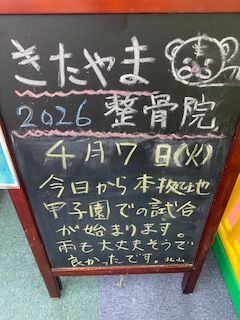 きたやま
2026 整骨院
4月7日(火)
今日から本拠地
甲子園での試合
が始まります。
雨も大丈夫そうで
良かったです。北山